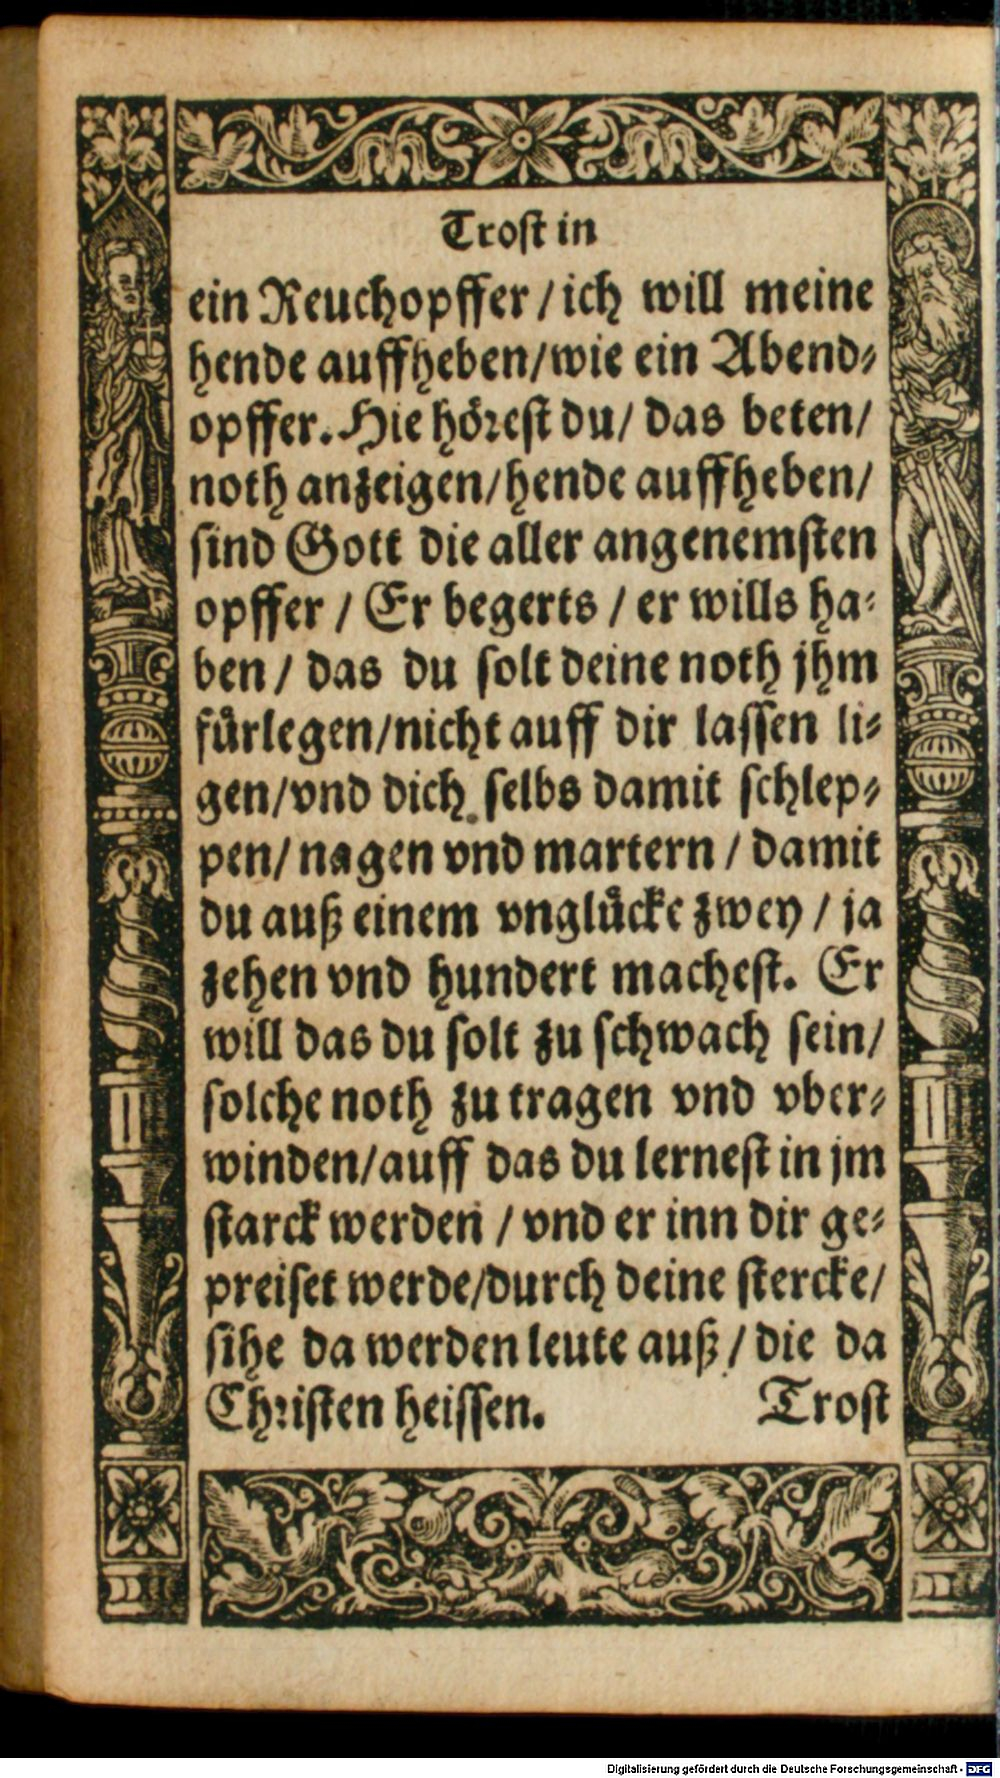 Trost in
ein Reuchopffer / ich will meine
hende auffheben/wie ein Abend⸗
opffer. Hie hörest du/ das beten/
noth anzeigen/hende auffheben/
sind Gott die aller angenemsten
opffer / Er begerts / er wills ha⸗
ben / das du solt deine noth jhm
fürlegen/nicht auff dir lassen li⸗
gen/vnd dich selbs damit schlep⸗
pen/ nagen vnd martern / damit
du auß einem vnglücke zwey / ja
zehen vnd hundert machest. Er
will das du solt zu schwach sein/
solche noth zu tragen vnd vber⸗
winden/auff das du lernest in jm
starck werden / vnd er inn dir ge⸗
preiset werde/durch deine stercke/
sihe da werden leute auß / die da
Christen heissen. Trost
Digitalisierung gefördert durch die Deutsche Forschungsgemeinschaft - DFG